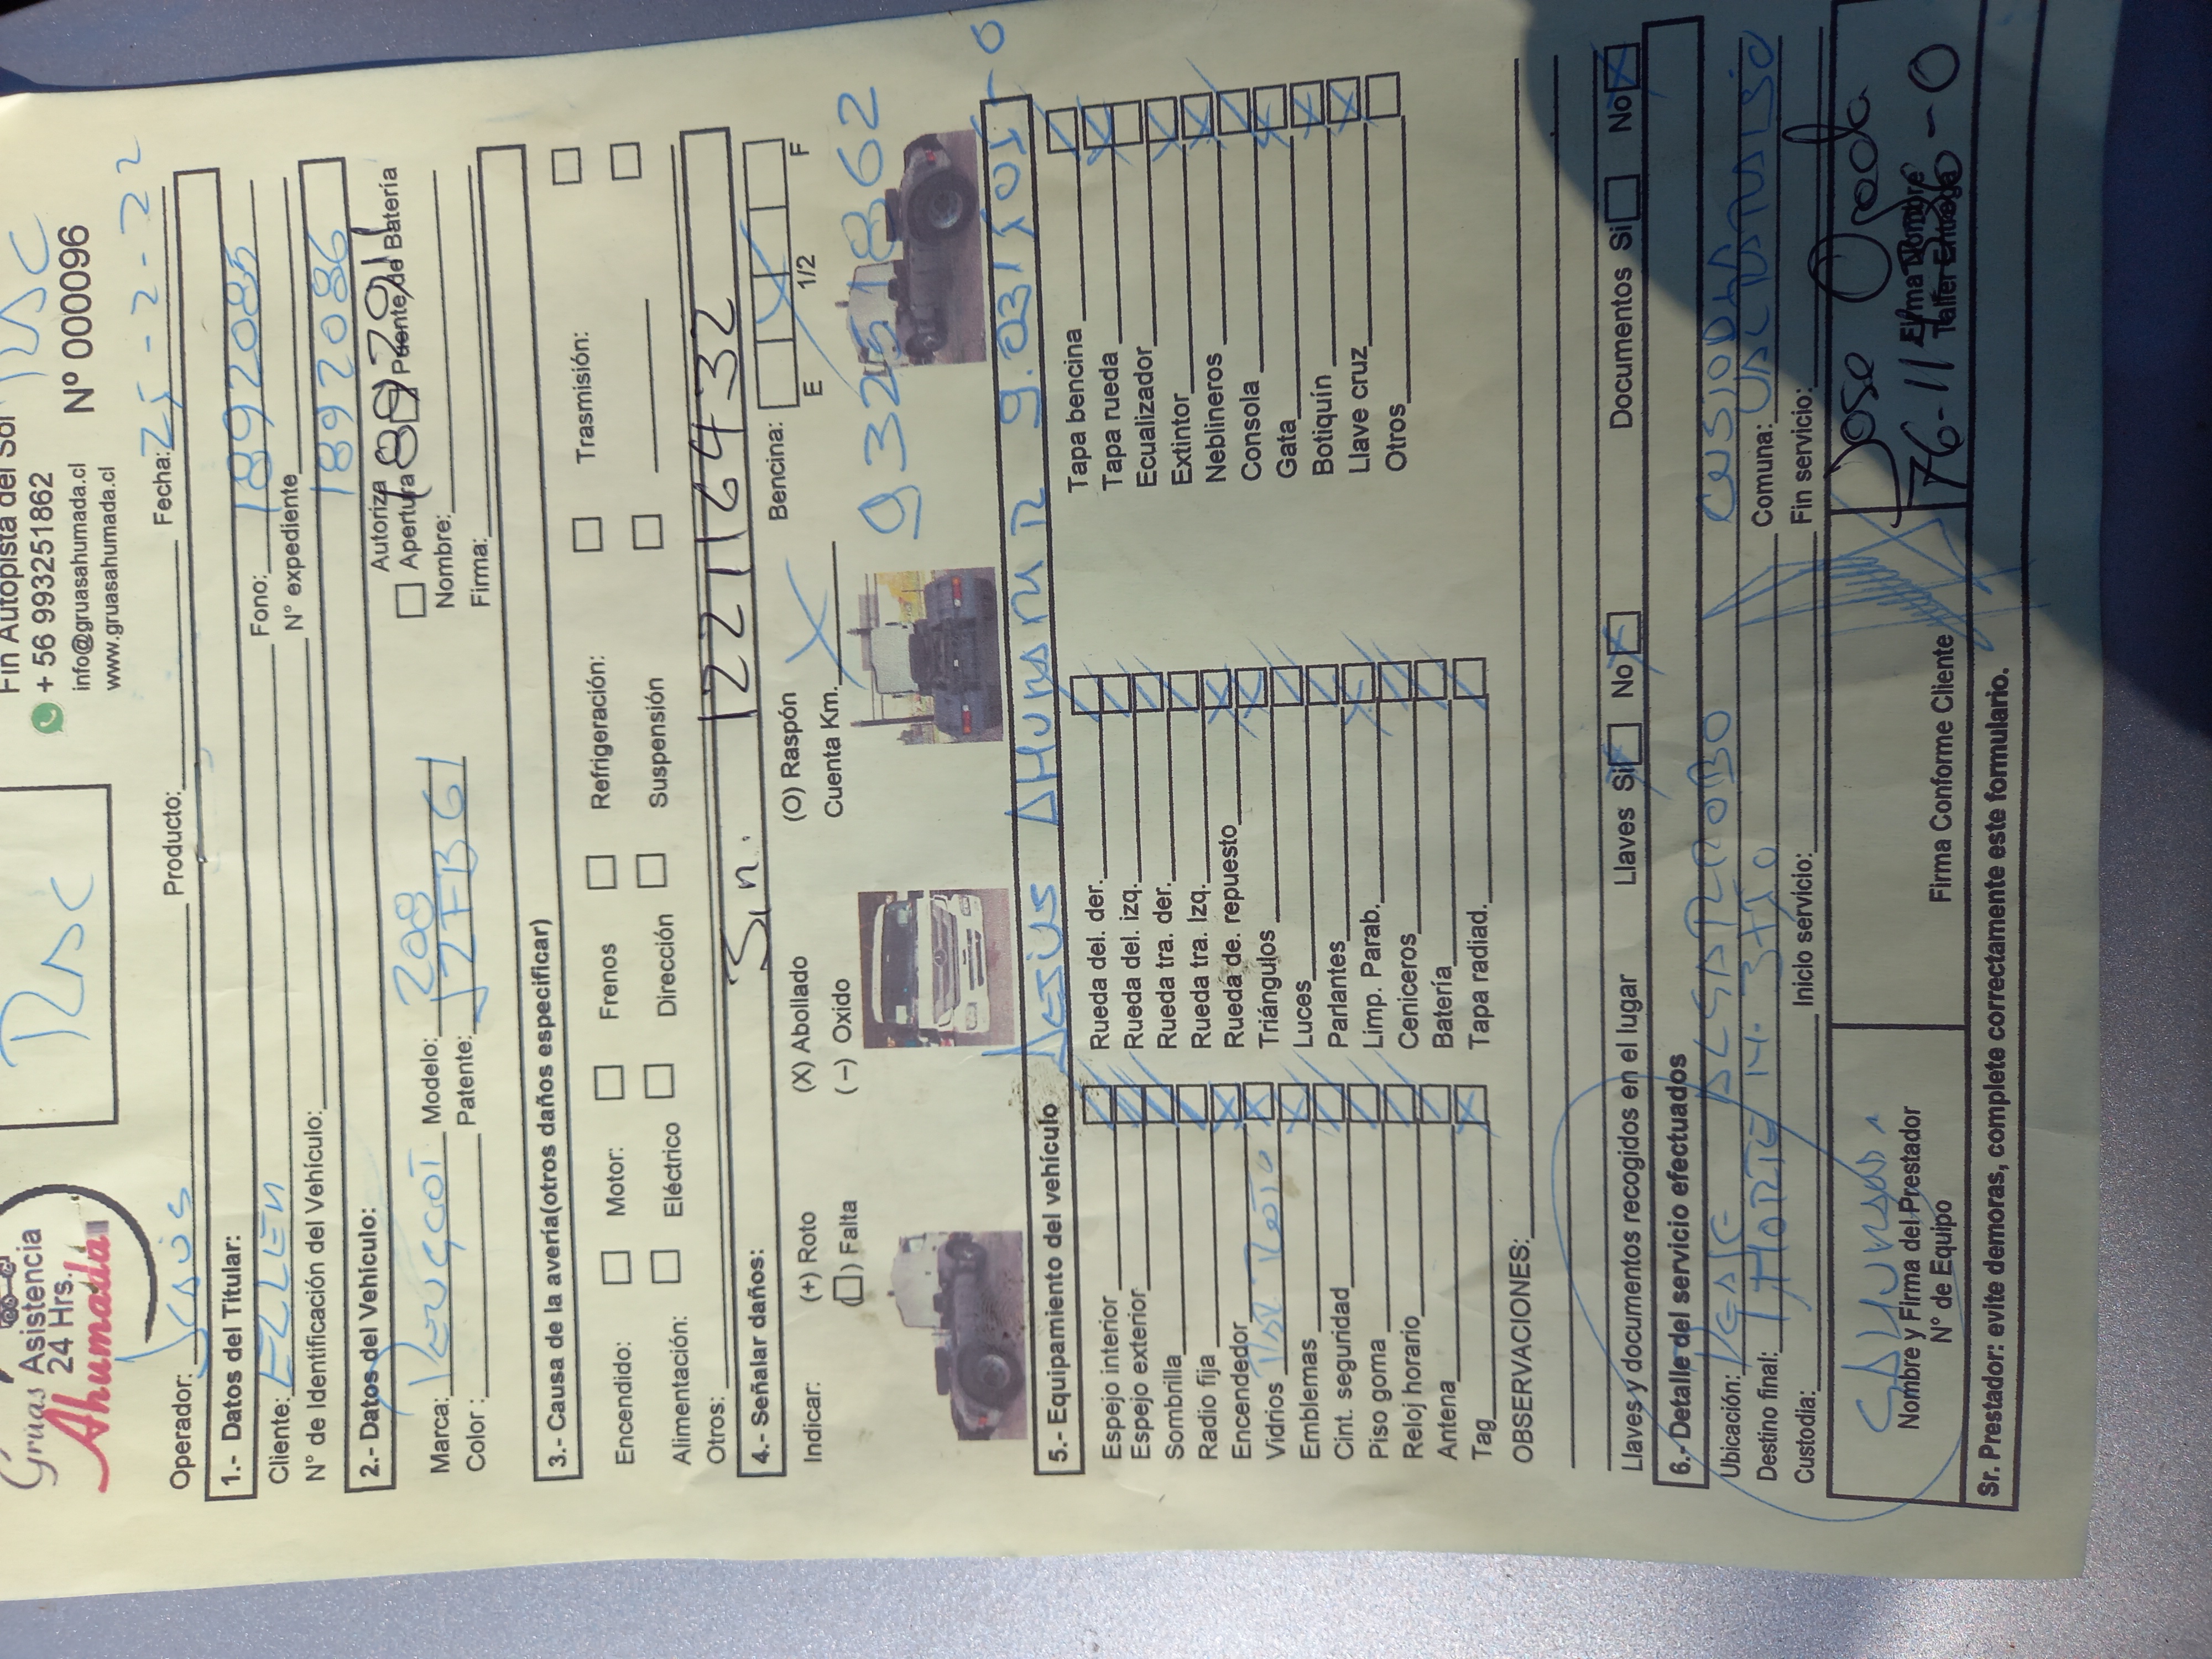 Grúas Asistencia
24 Hrs.
Ahumada
RSC
Fin Autopista del Sol
RSC
+ 56 993251862
Nº 000096
info@gruasahumada.cl
www.gruasahumada.cl
Operador: Jesus Producto: Fecha: 25-2-22
1.- Datos del Titular:
Cliente: ELLEN Fono: 1892085
N° de Identificación del Vehículo: N° expediente
1892086
2.- Datos del Vehículo:
Autoriza
Apertura Puente de Batería
Marca: Peugeot Modelo: 208 Nombre:
Color : Patente: Firma:
3.- Causa de la avería(otros daños especificar)
Encendido: Motor: Frenos Refrigeración: Trasmisión:
Alimentación: Eléctrico Dirección Suspensión
Otros:
Sin. 12216432
4.- Señalar daños:
Indicar: (+) Roto (X) Abollado (O) Raspón Bencina: E 1/2 F
() Falta (–) Oxido Cuenta Km.
993251862
5.- Equipamiento del vehículo
Jesus Ahumada
Espejo interior Rueda del. der. Tapa bencina
Espejo exterior Rueda del. izq. Tapa rueda
Sombrilla Rueda tra. der. Ecualizador
Radio fija Rueda tra. Izq. Extintor
Encendedor Rueda de. repuesto Neblineros
Vidrios Triángulos Consola
Emblemas Luces Gata
Cint. seguridad Parlantes Botiquín
Piso goma Limp. Parab. Llave cruz
Reloj horario Ceniceros Otros
Antena Batería
Tag Tapa radiad.
OBSERVACIONES:
Llaves y documentos recogidos en el lugar Llaves Si No Documentos Si No
6.- Detalle del servicio efectuados
Ubicación: Algarrobo
Destino final: Comuna:
Custodia: Inicio servicio: Fin servicio:
Jose
Nombre y Firma del Prestador
N° de Equipo
Firma Conforme Cliente
Sr. Prestador: evite demoras, complete correctamente este formulario.